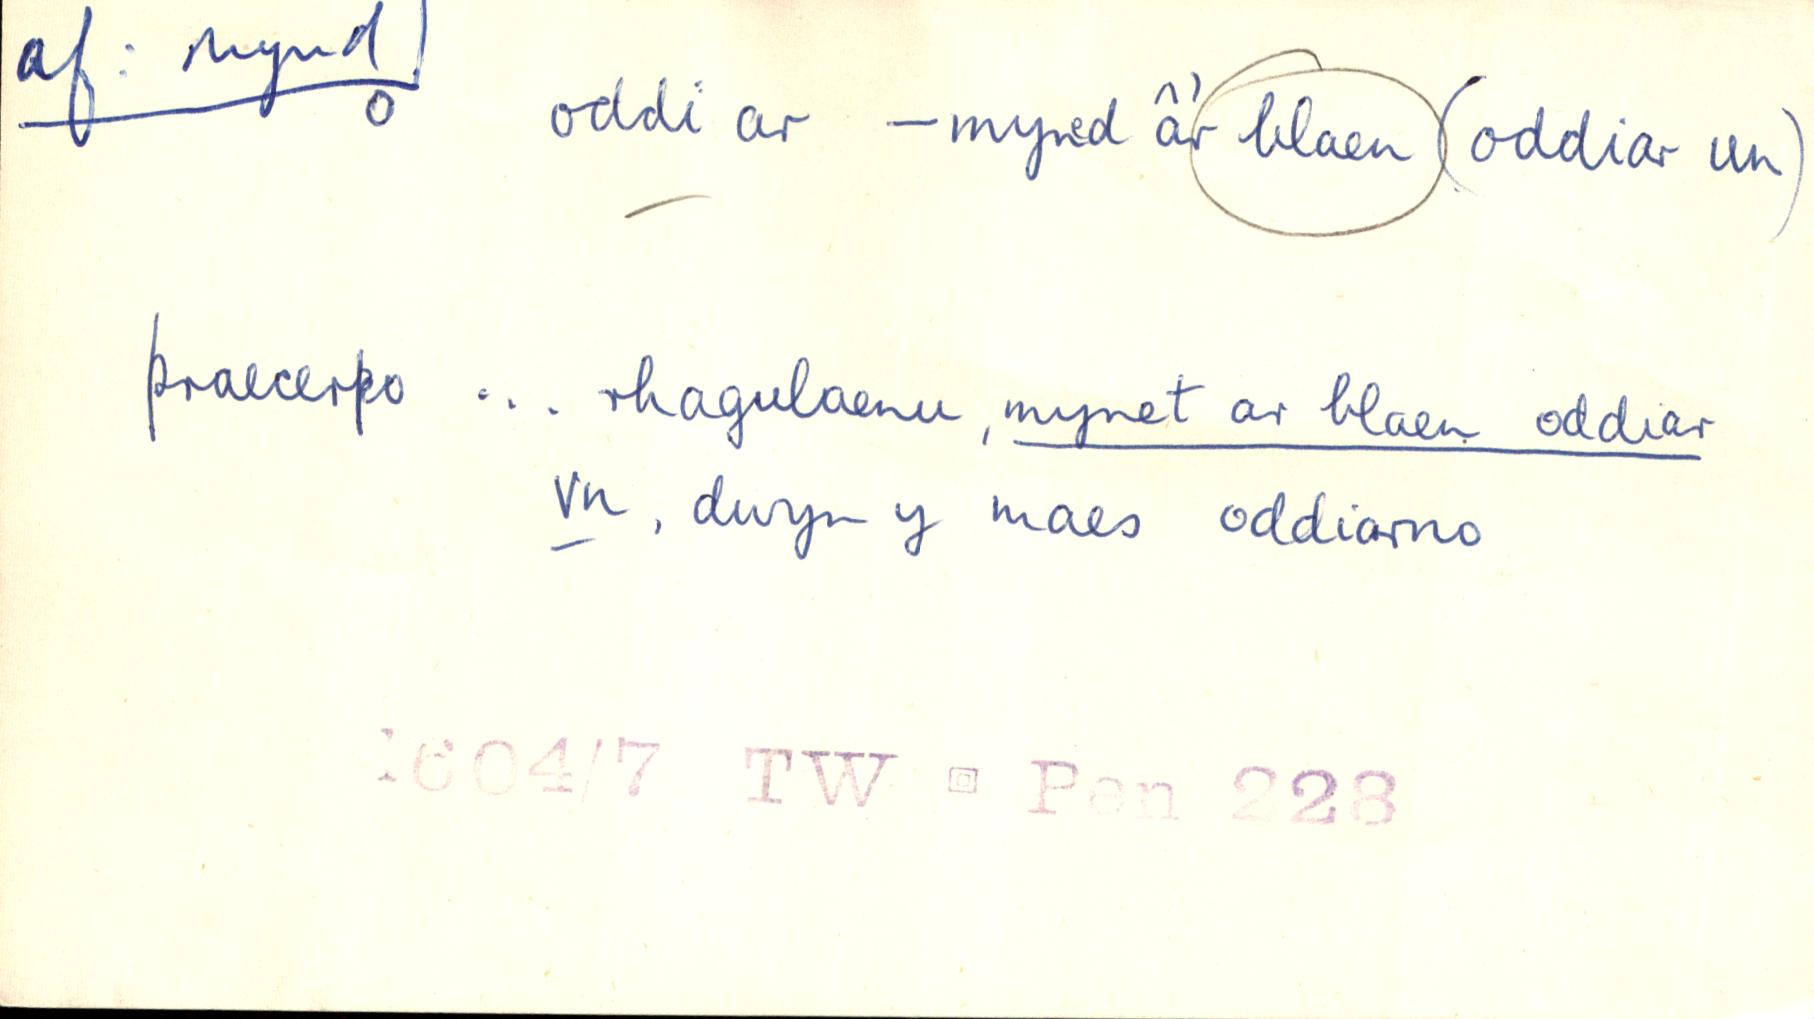 af: mynd
o oddi ar — myned âr blaen (oddiar un)
praecerpo ... rhagulaenu, mynet ar blaen oddiar
vn, dwyn y maes oddiarno
1604/7 TW ▣ Pen 228